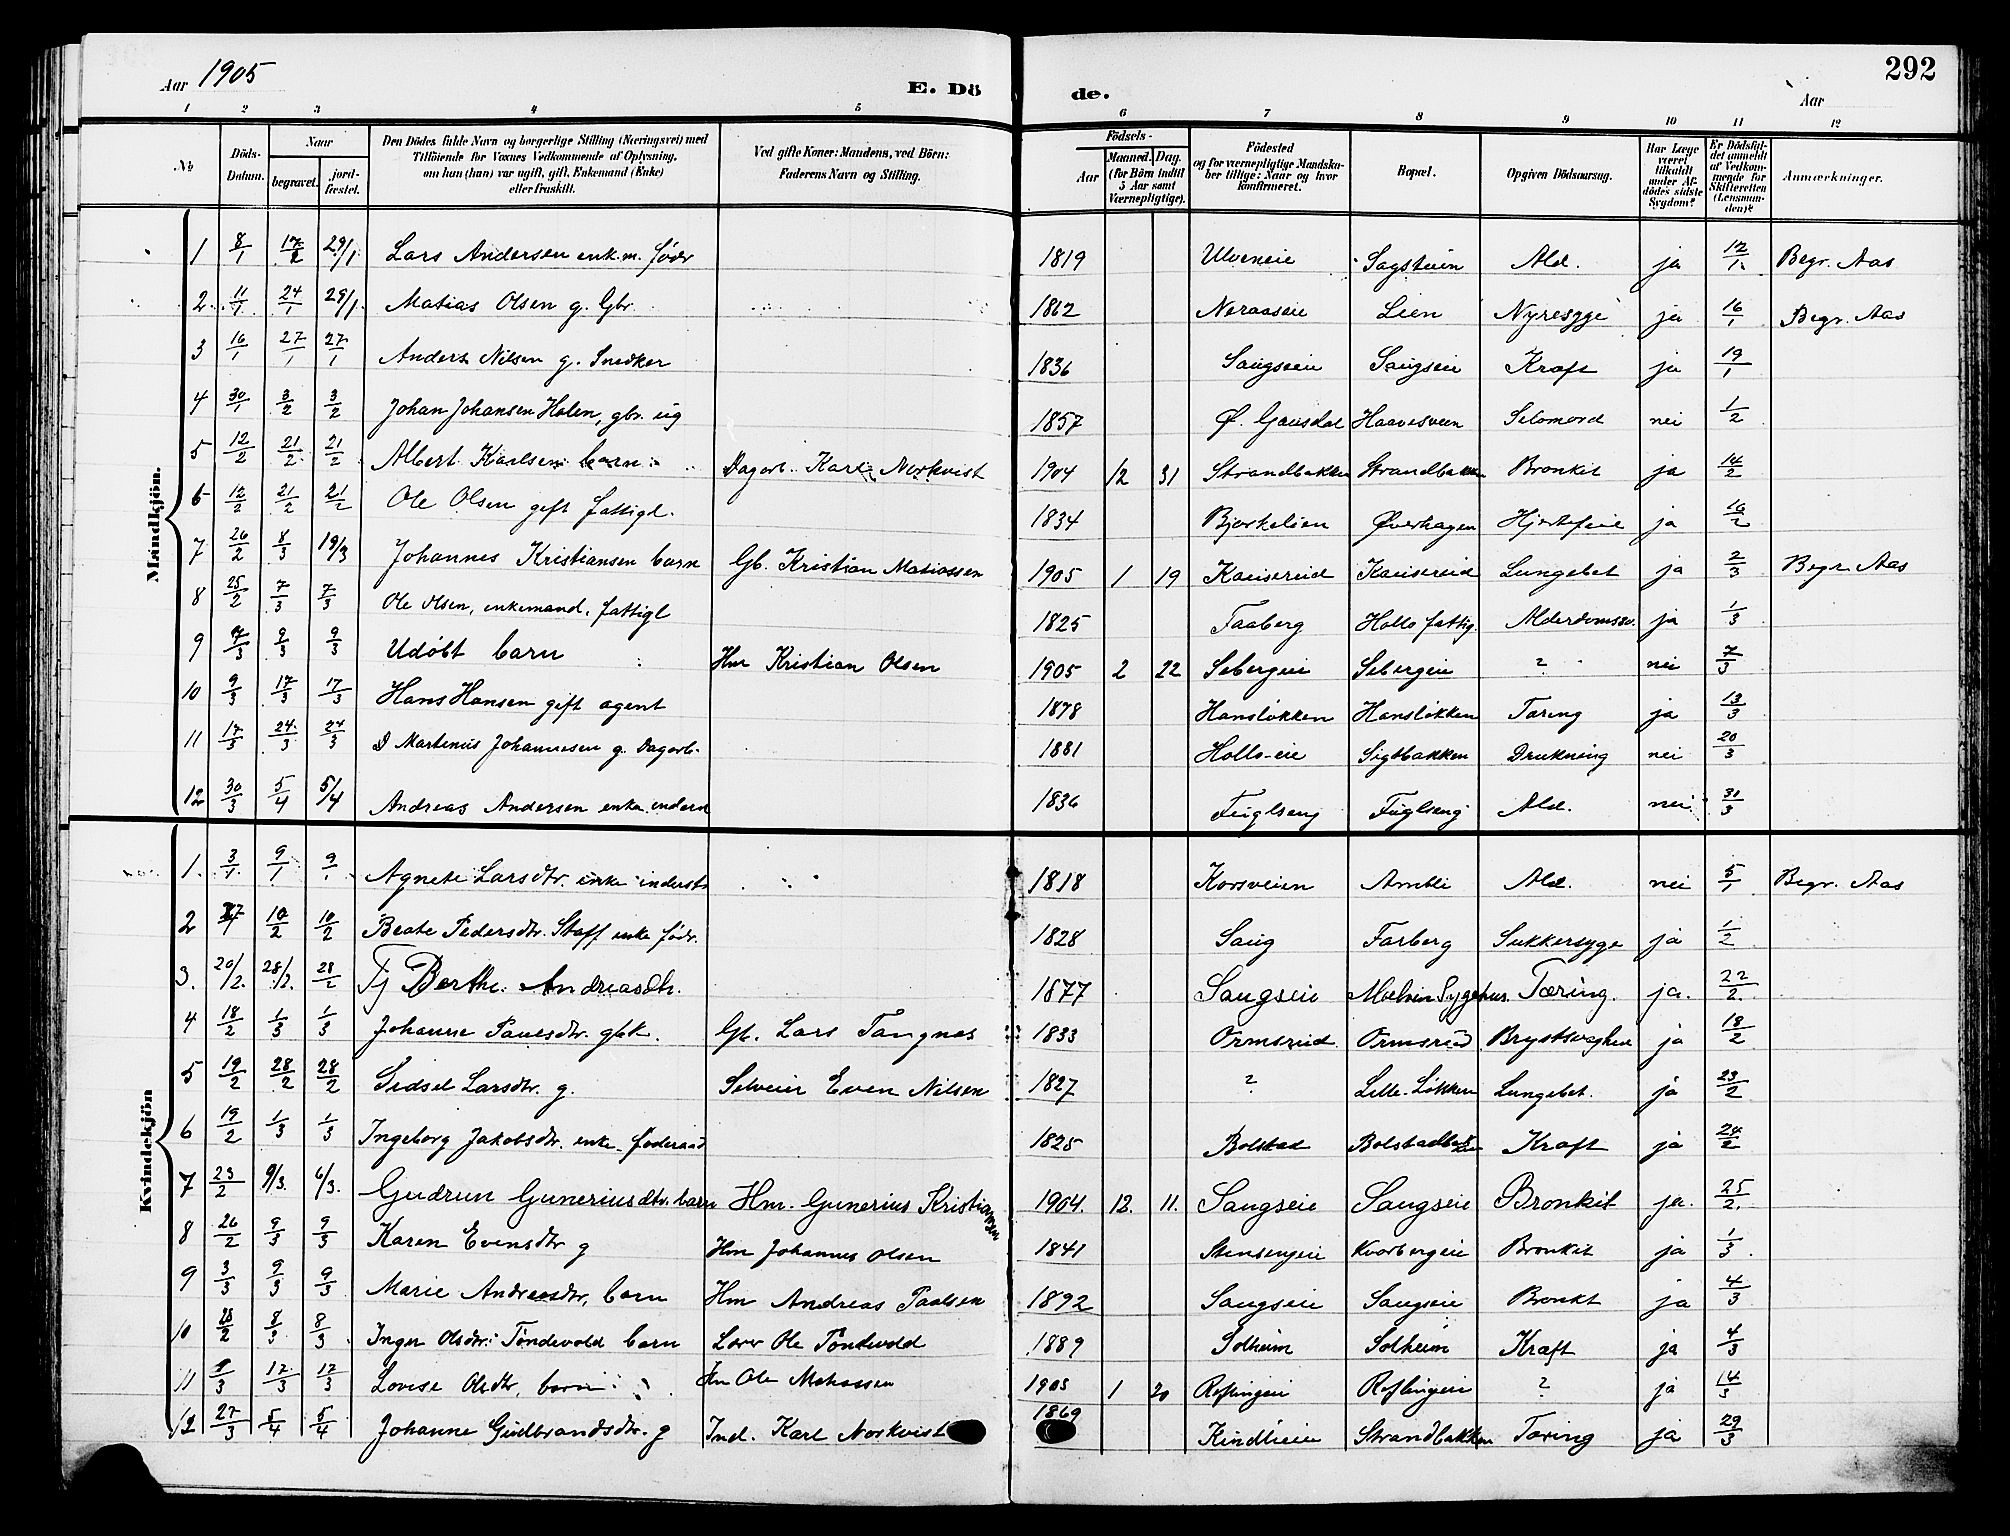 Aar 1905 E. Dö de. Aar 292
1 2 3 4 5 6 7 8 9 10 11 12
No. Döds-Datum. Naar begravet. jord-fæstet. Den Dödes fulde Navn og borgerlige Stilling (Næringsvei) med Tilföiende for Voxnes Vedkommende af Oplysning, om han (hun) var ugift, gift, Enkemand (Enke) eller fraskilt. Ved gifte Koner: Mandens, ved Börn: Faderens Navn og Stilling. Födsels- Aar Maaned. Dag. (for Börn indtil 5 Aar samt Værnepligtige). Födested og for værnepligtige Mandskaber tillige: Naar og hvor konfirmeret. Bopæl. Opgiven Dödsaarsag. Har Læge været tilkaldt under Afdödes sidste Sygdom? Er Dödsfaldet anmeldt af Vedkommende for Skifteretten (Lensmanden)? Anmærkninger.
Mandkjön.
1 8/1 17/2 29/1 Lars Andersen enk.m. födr 1819 Ulveneie Sagstuen Ald. ja 12/1 Begr. Aas
2 11/1 24/1 29/1 Matias Olsen g. Gbr. 1862 Neraaseie Lien Nyresyge ja 16/1 Begr. Aas
3 16/1 27/1 27/1 Anders Nilsen g. Snedker 1836 Saugseie Saugseie Kræft ja 19/1
4 30/1 3/2 3/2 Johan Johansen Holen, gbr. ug 1857 Ø. Gausdal Haavesveen Selvmord nei 1/2
5 12/2 21/2 21/2 Albert Karlsen barn Dagarb. Karl Norkvist 1904 12 31 Strandbakken Strandbakken Bronkit ja 14/2
6 12/2 21/2 21/2 Ole Olsen gift fattigl. 1834 Bjørkelien Øverhagen Hjertefeil ja 16/2
7 26/2 8/3 19/3 Johannes Kristiansen barn Gb. Kristian Matiassen 1905 1 19 Kauserud Kauserud Lungebet ja 2/3 Begr. Aas
8 25/2 7/3 7/3 Ole Olsen, enkemand, fattigl 1825 Faaberg Hollo fattig. Alderdomssv. ja 1/3
9 7/3 9/3 9/3 Udøbt barn Hm Kristian Olsen 1905 2 22 Sebergeie Sebergeie ? nei 7/3
10 9/3 17/3 17/3 Hans Hansen gift agent 1878 Hansløkken Hansløkken Tæring ja 13/3
11 17/3 24/3 24/3 D Martinius Johannesen g. Dagarb. 1881 Hollo-eie Sigstbakken Drukning nei 20/3
12 30/3 5/4 5/4 Andreas Andersen enkem inderst 1836 Fuglseng Fuglseng Ald. nei 31/3
Kvindekjön
1. 3/1 9/1 9/1 Agnete Larsdtr. enke inderst 1818 Korsveien Amlie Ald. nei 5/1 Begr. Aas
2 10/2 10/2 Beate Pedersdtr. Staff enke födr. 1828 Saug Farberg Sukkersyge ja 1/2
3. 20/2. 28/2. 28/2 Tj Berthe Andreasdtr. 1877 Saugseie Moelven Sygehus. Tæring. ja. 22/2.
4 18/2 1/3 1/3 Johanne Paulsdtr. gbk. Gb. Lars Tangnes 1833 Ormsrud Ormsrud Brystsvaghed ja 18/2
5 19/2 28/2 28/2 Sidsel Larsdtr. g. Selveier Even Nilsen 1827 ? Lille Løkken Lungebet. ja 23/2
6 19/2 1/3 1/3 Ingeborg Jakobsdtr. enke föderaad 1825 Bolstad Bolstadbakken Kræft ja 24/2
7 23/2 9/3. 6/3. Gudrun Guneriusdtr. barn Hm. Gunerius Kristiansen 1904. 12. 11. Saugseie Saugseie Bronkit ja. 25/2.
8 26/2 9/3 9/3 Karen Evensdtr g Hm Johannes Olsen 1841 Stensengeie Kvarbergeie Bronkit ja 1/3
9 3/3 9/3 9/3 Marie Andreasdtr, barn Hm Andreas Paalsen 1892 Saugseie Saugseie Bronkt ja 4/3
10 28/2 8/3 8/3 Inger Olsdtr. Tøndevold barn Lærer Ole Tøndevold 1889 Solheim Solheim Kræft ja 4/3
11 9/3 17/3 17/3 Lovise Olsdtr, barn Hm Ole Mathiassen 1905 1 20 Roflingeie Roflingeie ? ja 14/3
12 27/3 5/4 5/4 Johanne Gudbrandsdtr. g Ind. Karl Norkvist 1869 Kindlieie Strandbakken Tæring ja 29/3